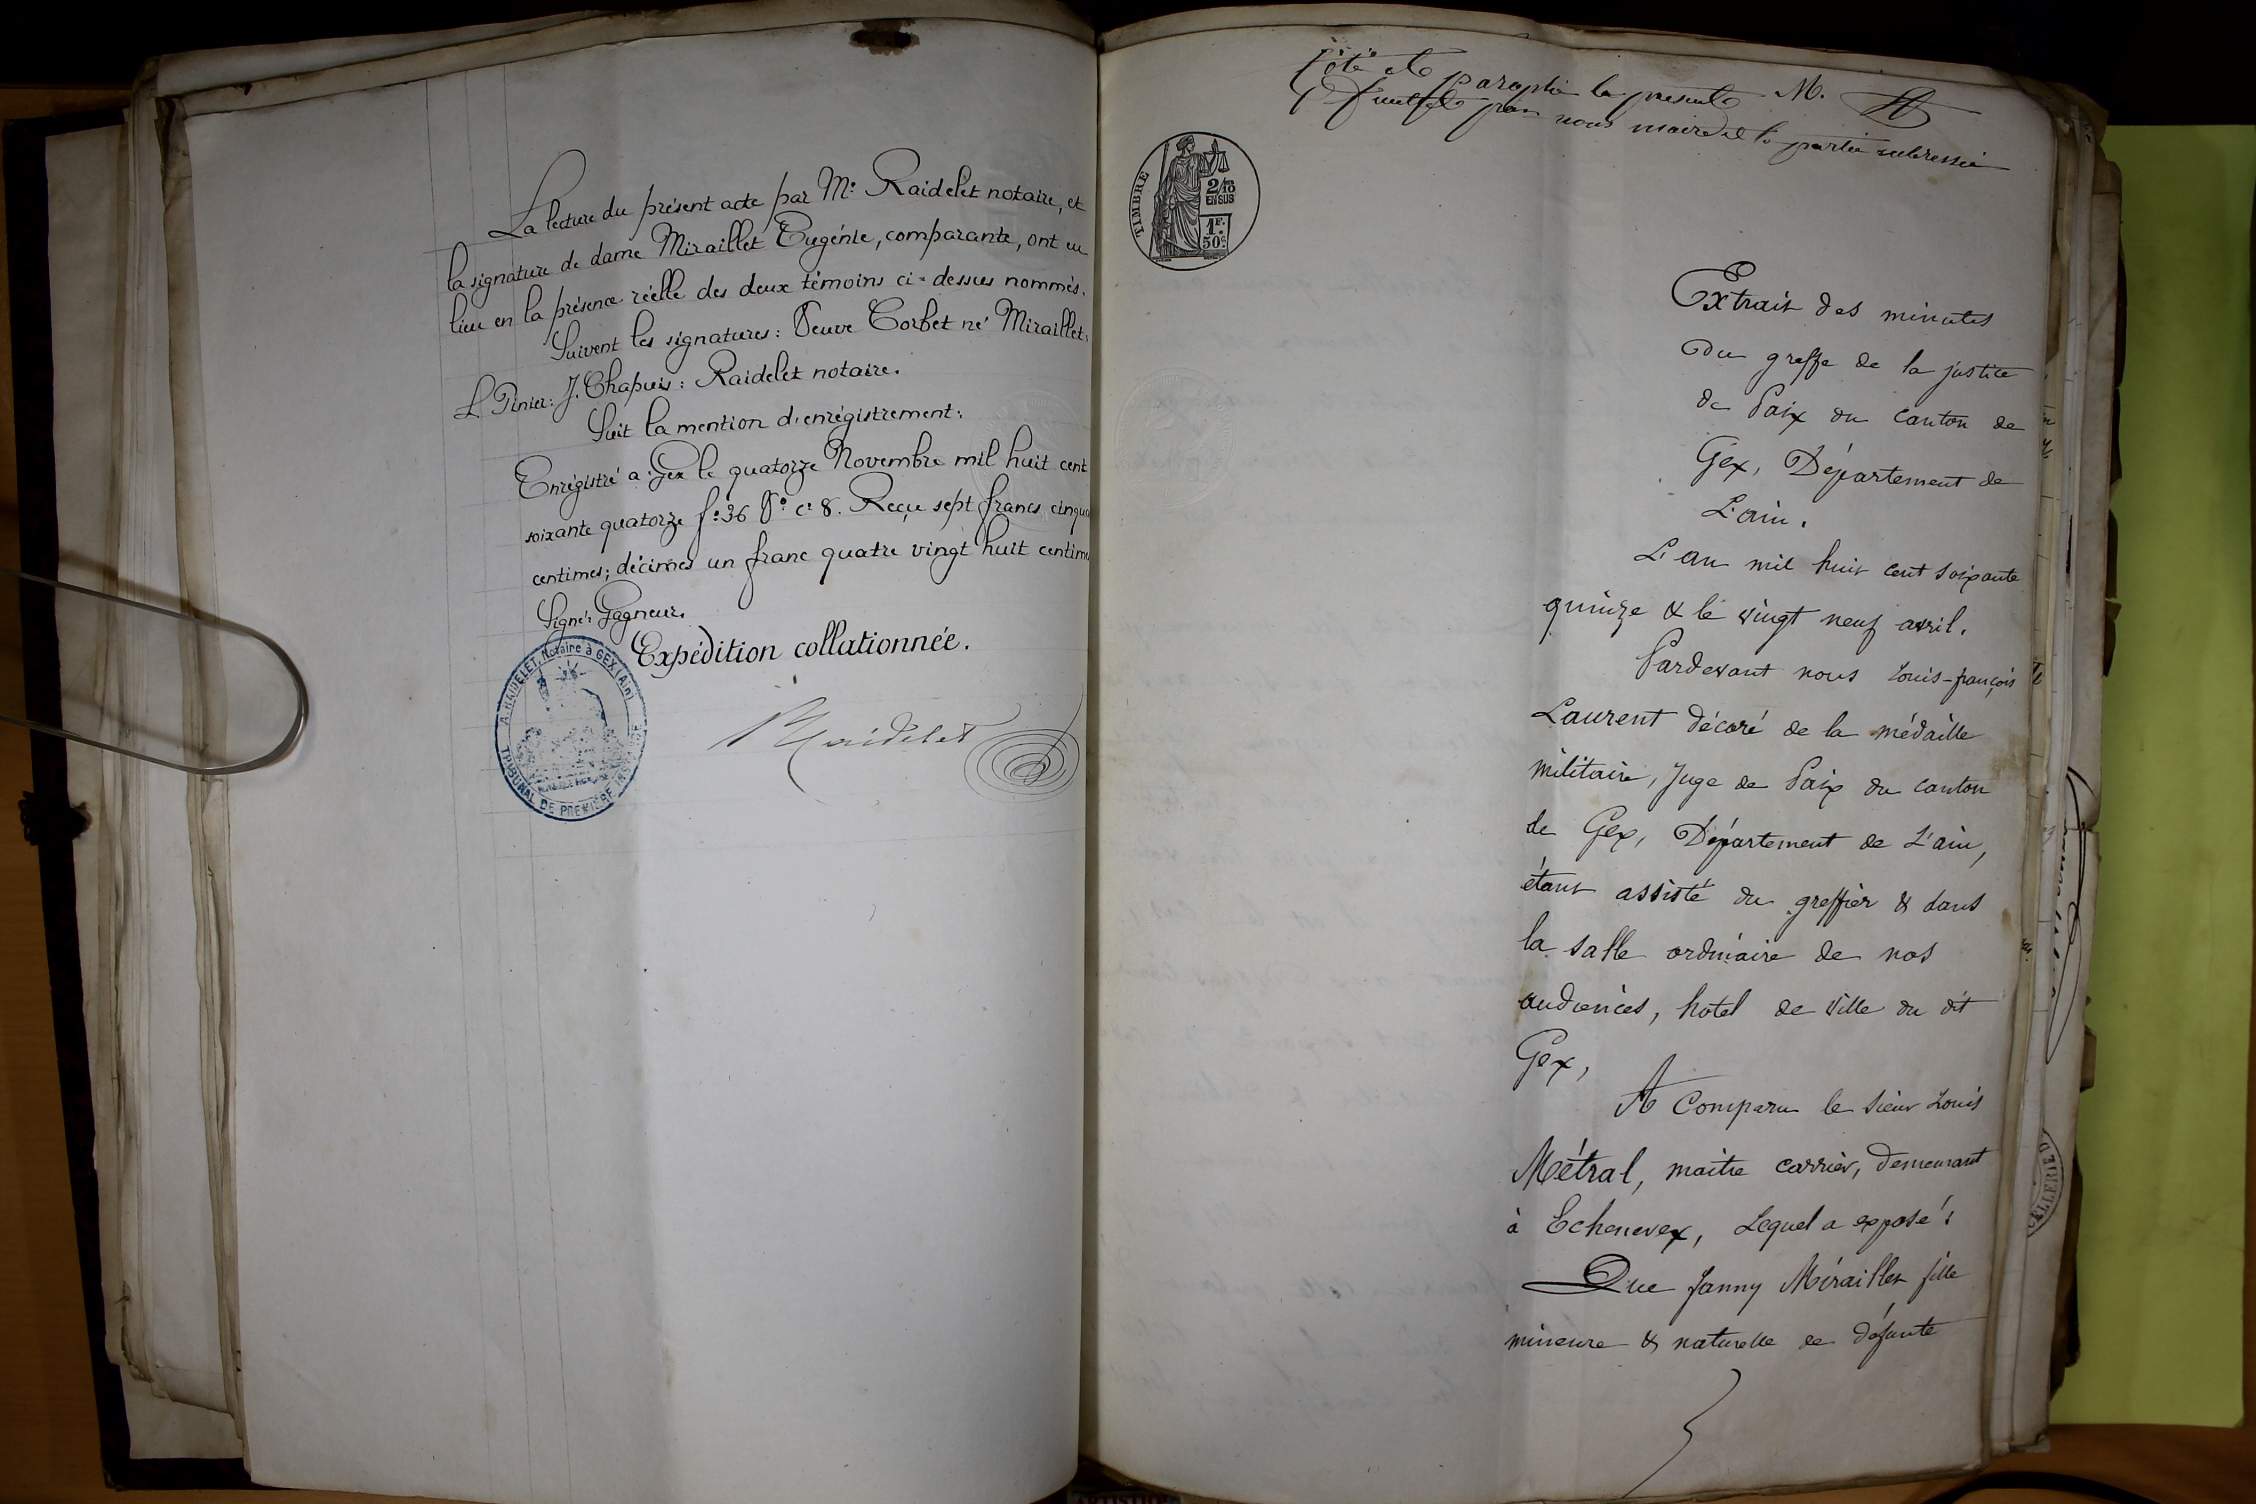 La lecture du présent acte par Me Raidelet notaire, et
la signature de dame Miraillet Eugénie, comparante, ont eu
lieu en la présence réelle des deux témoins ci-dessus nommés.
Suivent les signatures: Veuve Corbet né Miraillet:
L. Pinier: J. Chapuis: Raidelet notaire.
Suit la mention d'enrégistrement:
Enrégistré a Gex le quatorze Novembre mil huit cent
soixante quatorze fo 36 Vo c. 8. Reçu sept francs cinqua
centimes; décimes un franc quatre vingt huit centim
Signé: Gagneur.
Expédition collationnée.
A. RAIDELET, Notaire à GEX (Ain)
TRIBUNAL DE PREMIÈRE INSTANCE
Raidelet
paraphé la présente M.
par nous maire et la partie
TIMBRE
2/10
EN SUS
1F.
50c.
Extrait des minutes
du greffe de la justice
de Paix du canton de
Gex, Département de
L'ain.
L'an mil huit cent soixante
quinze & le vingt neuf avril.
Pardevant nous Louis-françois
Laurent décoré de la médaille
militaire, Juge de Paix du canton
de Gex, Département de L'ain,
étant assisté du greffier & dans
la salle ordinaire de nos
audiences, hotel de ville du dit
Gex,
A Comparu le sieur Louis
Métral, maitre carrier, demeurant
à Echenevex, Lequel a exposé:
Que Janny Méraillet fille
mineure & naturelle de défunte